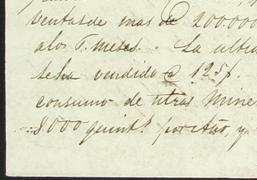 ventas de mas de 200.000
a los 6. meses. La ultima
se ha vendido @ 125/.
consumo de otras Mine
8000 quint.s por año, y